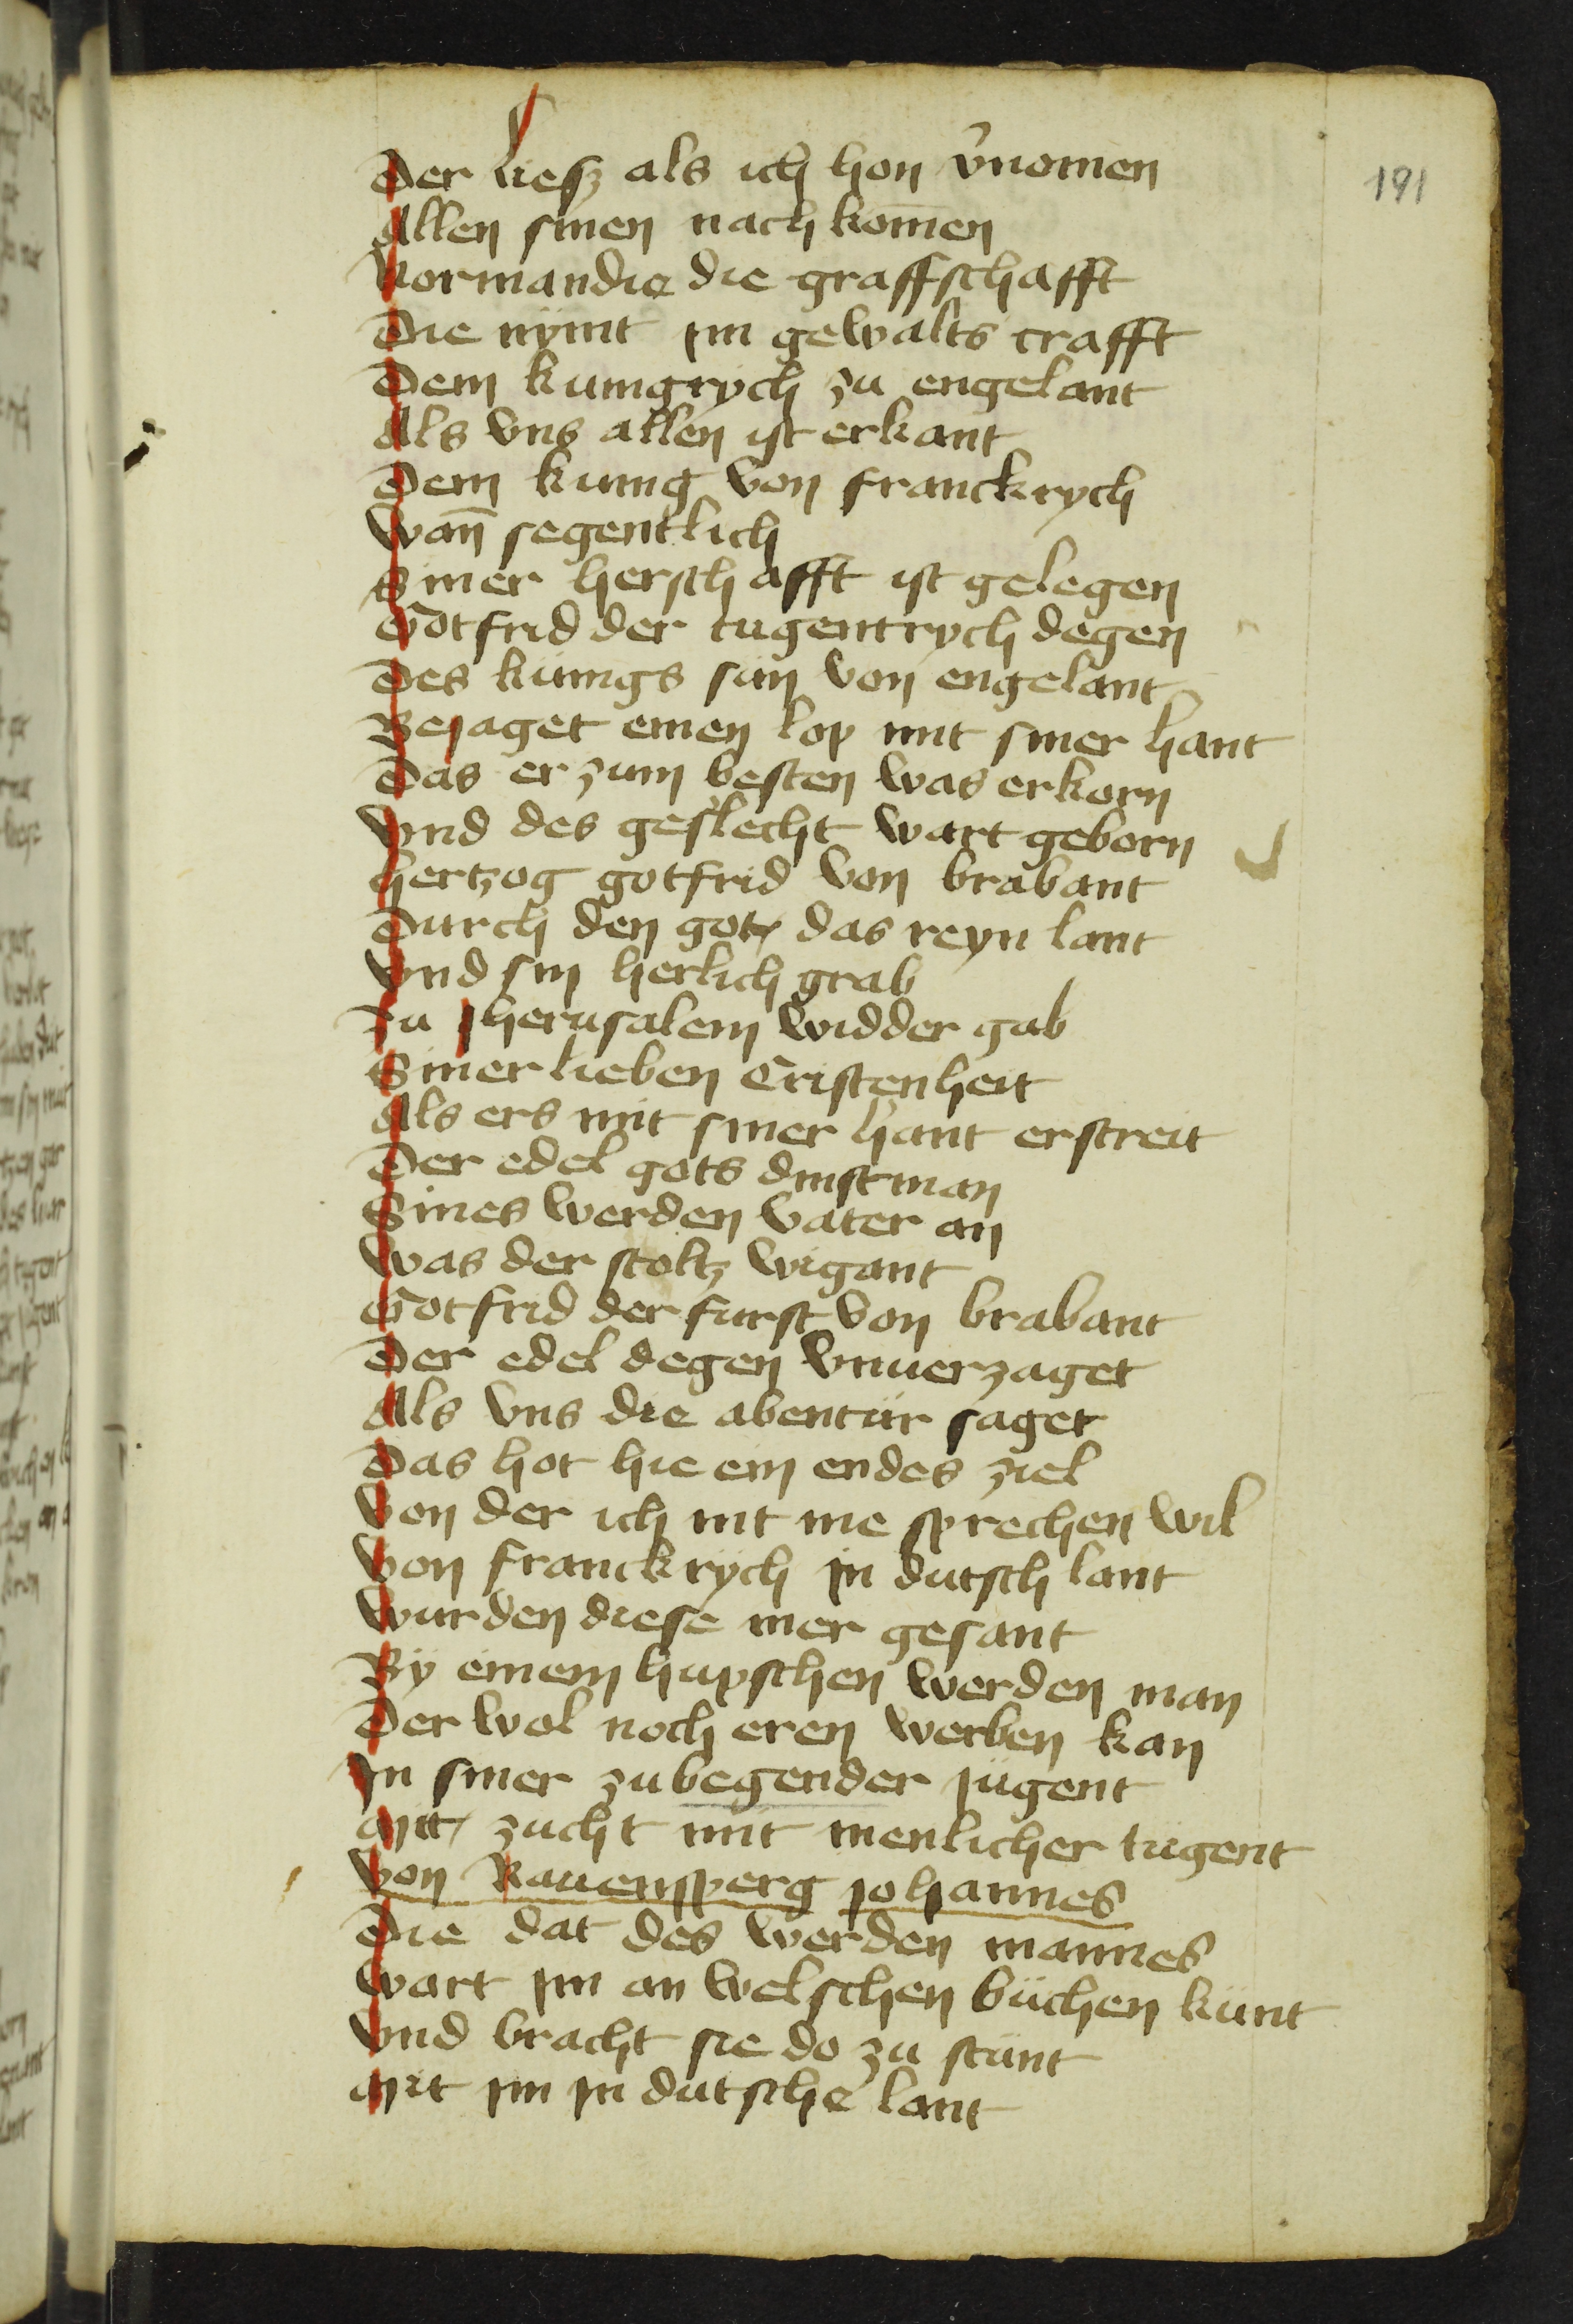 191
Der liesz als ich hon v̉nomen
Allen sinen nach kom̄en
Normandie die graffschafft
Die nymt im gewalts crafft
Dem kunigrych zu engelant
Als vns allen ist erkant
Dem kunig von franckrych
Wan̄ segentlich
Siner herschafft ist gelegen
Gotfrid der tugentrych degen
Des kunigs sun von engelant
Bejaget einen lop mit siner hant
Das er zum besten was erkorn
Vnd des geslecht wart geborn
Hertzog gotfrid von brabant
Durch den got das reyn lant
Vnd sin herlich grab
Zu Jherusalem widder gab
Siner lieben Cristenheit
Als ers mit siner hant erstreit
Der edel gots dinstman
Sines werden vater an
Was der stoltz wigant
Gotfrid der furst von brabant
Der edel degen vnuerzaget
Als vns die abentur saget
Das hot hie ein endes ziel
Von der ich nit me sprechen wil
Von franckrych in dutsch lant
Wurden diese mer gesant
By einem hupschen werden man
Der wol noch eren werben kan
In siner zubegender jugent
Mit zucht mit menlicher tugent
Von Rauensperg johannes
Die dat des werden mannes
Wart im an welschen buchen kunt
Vnd bracht sie do zu stunt
Mit im in dutsche lant